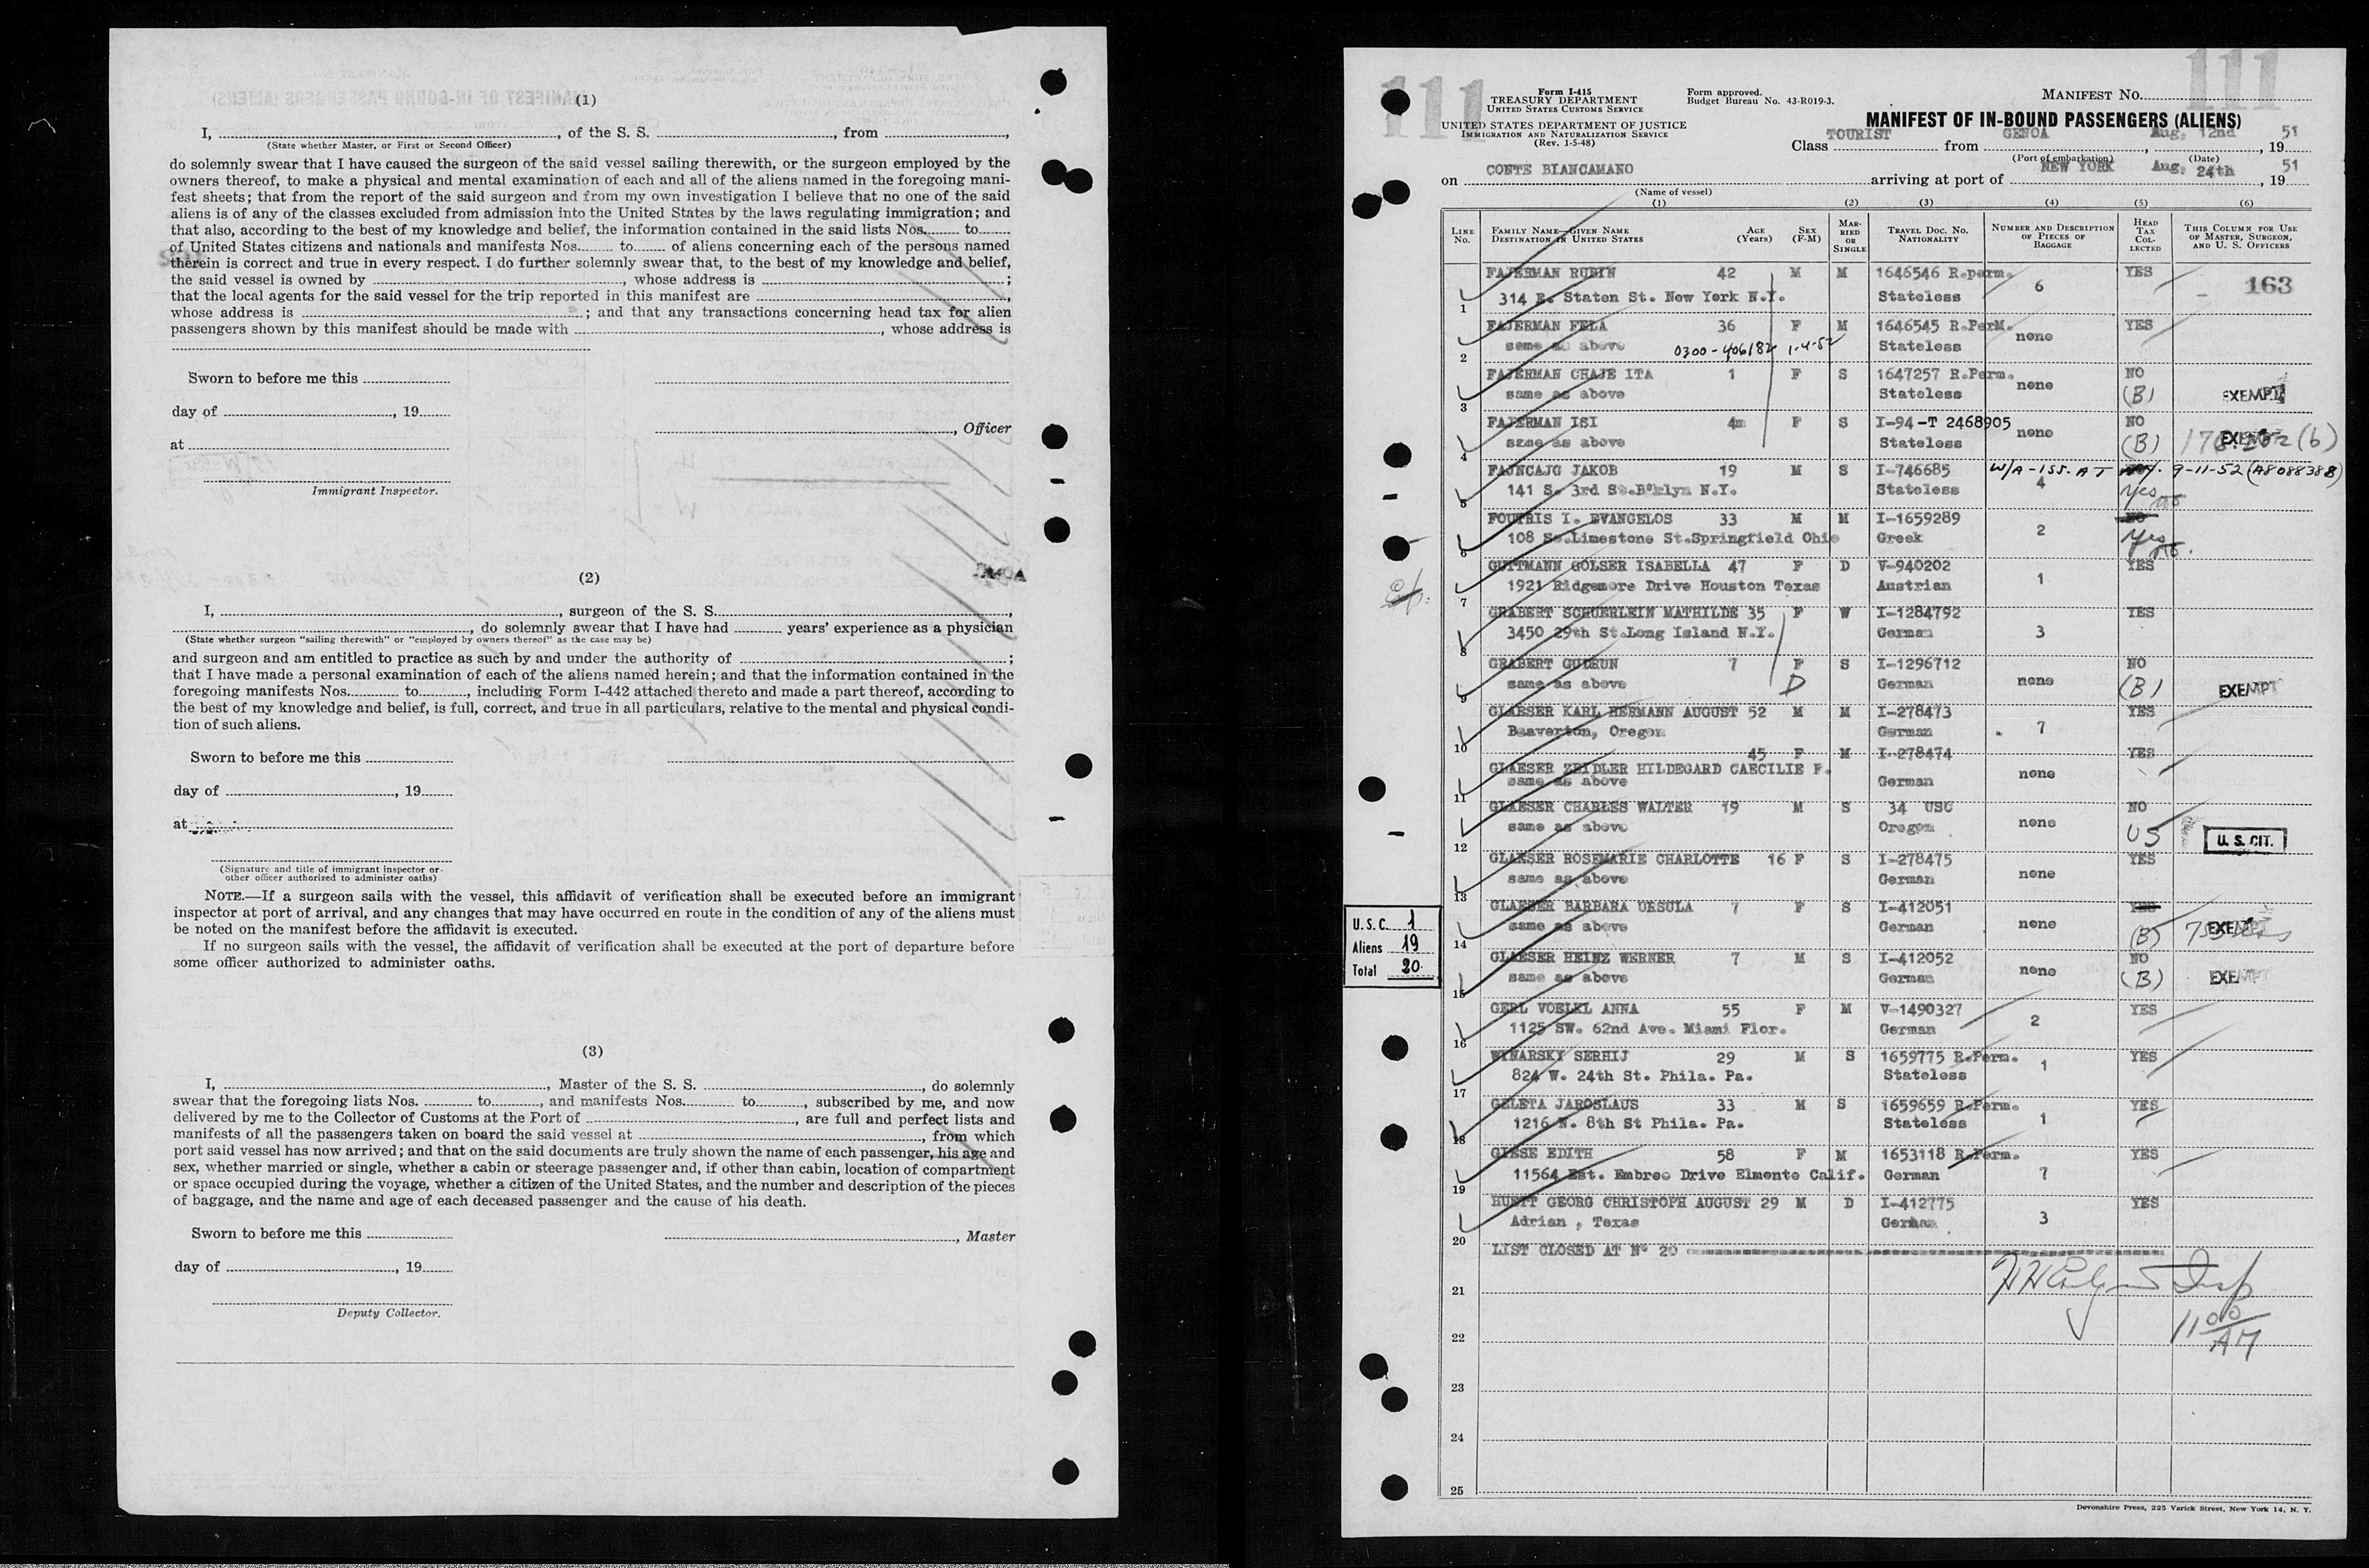 (1)
I, ......, of the S. S. ......, from ......,
(State whether Master, or First or Second Officer)
do solemnly swear that I have caused the surgeon of the said vessel sailing therewith, or the surgeon employed by the
owners thereof, to make a physical and mental examination of each and all of the aliens named in the foregoing mani-
fest sheets; that from the report of the said surgeon and from my own investigation I believe that no one of the said
aliens is of any of the classes excluded from admission into the United States by the laws regulating immigration; and
that also, according to the best of my knowledge and belief, the information contained in the said lists Nos. ...... to ......
of United States citizens and nationals and manifests Nos. ...... to ...... of aliens concerning each of the persons named
therein is correct and true in every respect. I do further solemnly swear that, to the best of my knowledge and belief,
the said vessel is owned by ......, whose address is ......;
that the local agents for the said vessel for the trip reported in this manifest are ......,
whose address is ......; and that any transactions concerning head tax for alien
passengers shown by this manifest should be made with ......, whose address is
Sworn to before me this ......
day of ......, 19......
......, Officer
at ......
Immigrant Inspector.
(2)
I, ......, surgeon of the S. S. ......,
......, do solemnly swear that I have had ...... years' experience as a physician
(State whether surgeon "sailing therewith" or "employed by owners thereof" as the case may be)
and surgeon and am entitled to practice as such by and under the authority of ......;
that I have made a personal examination of each of the aliens named herein; and that the information contained in the
foregoing manifests Nos. ...... to ......, including Form I-442 attached thereto and made a part thereof, according to
the best of my knowledge and belief, is full, correct, and true in all particulars, relative to the mental and physical condi-
tion of such aliens.
Sworn to before me this ......
day of ......, 19......
at ......
(Signature and title of immigrant inspector or
other officer authorized to administer oaths)
NOTE.—If a surgeon sails with the vessel, this affidavit of verification shall be executed before an immigrant
inspector at port of arrival, and any changes that may have occurred en route in the condition of any of the aliens must
be noted on the manifest before the affidavit is executed.
If no surgeon sails with the vessel, the affidavit of verification shall be executed at the port of departure before
some officer authorized to administer oaths.
(3)
I, ......, Master of the S. S. ......, do solemnly
swear that the foregoing lists Nos. ...... to ......, and manifests Nos. ...... to ......, subscribed by me, and now
delivered by me to the Collector of Customs at the Port of ......, are full and perfect lists and
manifests of all the passengers taken on board the said vessel at ......, from which
port said vessel has now arrived; and that on the said documents are truly shown the name of each passenger, his age and
sex, whether married or single, whether a cabin or steerage passenger and, if other than cabin, location of compartment
or space occupied during the voyage, whether a citizen of the United States, and the number and description of the pieces
of baggage, and the name and age of each deceased passenger and the cause of his death.
Sworn to before me this ......
......, Master
day of ......, 19......
Deputy Collector.
111 111
Form I-415
TREASURY DEPARTMENT
UNITED STATES CUSTOMS SERVICE
UNITED STATES DEPARTMENT OF JUSTICE
IMMIGRATION AND NATURALIZATION SERVICE
(Rev. 1-5-48)
Form approved.
Budget Bureau No. 43-R019-3.
MANIFEST NO. ......
MANIFEST OF IN-BOUND PASSENGERS (ALIENS)
Class TOURIST from GENOA, Aug. 12nd, 1951
(Port of embarkation) (Date)
on CONTE BIANCAMANO arriving at port of NEW YORK Aug. 24th, 1951
(Name of vessel)
(1) (2) (3) (4) (5) (6)
LINE NO. FAMILY NAME—GIVEN NAME DESTINATION IN UNITED STATES AGE (YEARS) SEX (F-M) MARRIED OR SINGLE TRAVEL DOC. NO. NATIONALITY NUMBER AND DESCRIPTION OF PIECES OF BAGGAGE HEAD TAX COLLECTED THIS COLUMN FOR USE OF MASTER, SURGEON, AND U. S. OFFICERS
FAJERMAN RUBIN 42 M M 1646546 R.perm. 6 YES 163
1 314 E. Staten St. New York N.Y. Stateless
FAJERMAN FELA 36 F M 1646545 R.PerM. none YES
2 same as above 0300-406182 1-4-52 Stateless
FAJERMAN CHAJE ITA 1 F S 1647257 R.Perm. none NO
3 same as above Stateless (B) EXEMPT
FAJERMAN ISI 4m F S I-94-T 2468905 none NO
4 same as above Stateless (B) EXEMPT
FAJNCAJG JAKOB 19 M S I-746685 W/A-155. A T 9-11-52 (A8088388)
5 141 S. 3rd St.B'klyn N.Y. Stateless 4 Yes
FOUTRIS I. EVANGELOS 33 M M I-1659289 2 NO
6 108 So.Limestone St.Springfield Ohio Greek Yes
GUTTMANN GOLSER ISABELLA 47 F D V-940202 1 YES
7 1921 Ridgemore Drive Houston Texas Austrian
GRABERT SCHUERLEIN MATHILDE 35 F W I-1284792 3 YES
8 3450 29th St.Long Island N.Y. German
GRABERT GUDRUN 7 F S I-1296712 none NO
9 same as above D German (B) EXEMPT
GLAESER KARL HERMANN AUGUST 52 M M I-278473 7 YES
10 Beaverton, Oregon German
45 F M I-278474 none YES
GLAESER ZEIDLER HILDEGARD CAECILIE F.
11 same as above German
GLAESER CHARLES WALTER 19 M S 34 USC none NO
12 same as above Oregon US U. S. CIT.
GLAESER ROSEMARIE CHARLOTTE 16 F S I-278475 none YES
13 same as above German
GLAESER BARBARA URSULA 7 F S I-412051 none YES
14 same as above German (B) EXEMPT
GLAESER HEINZ WERNER 7 M S I-412052 none NO
15 same as above German (B) EXEMPT
GERL VOELKL ANNA 55 F M V-1490327 2 YES
16 1125 SW. 62nd Ave. Miami Flor. German
WYNARSKY SERHIJ 29 M S 1659775 R.Perm. 1 YES
17 824 W. 24th St. Phila. Pa. Stateless
GELETA JAROSLAUS 33 M S 1659659 R.Perm. 1 YES
18 1216 N. 8th St Phila. Pa. Stateless
GIESE EDITH 58 F M 1653118 R.Perm. 7 YES
19 11564 Est. Embree Drive Elmonte Calif. German
HUETT GEORG CHRISTOPH AUGUST 29 M D I-412775 3 YES
20 Adrian , Texas German
LIST CLOSED AT N° 20
21
22
1100 AM
23
24
25
U. S. C. 1
Aliens 19
Total 20
Devonshire Press, 225 Varick Street, New York 14, N. Y.